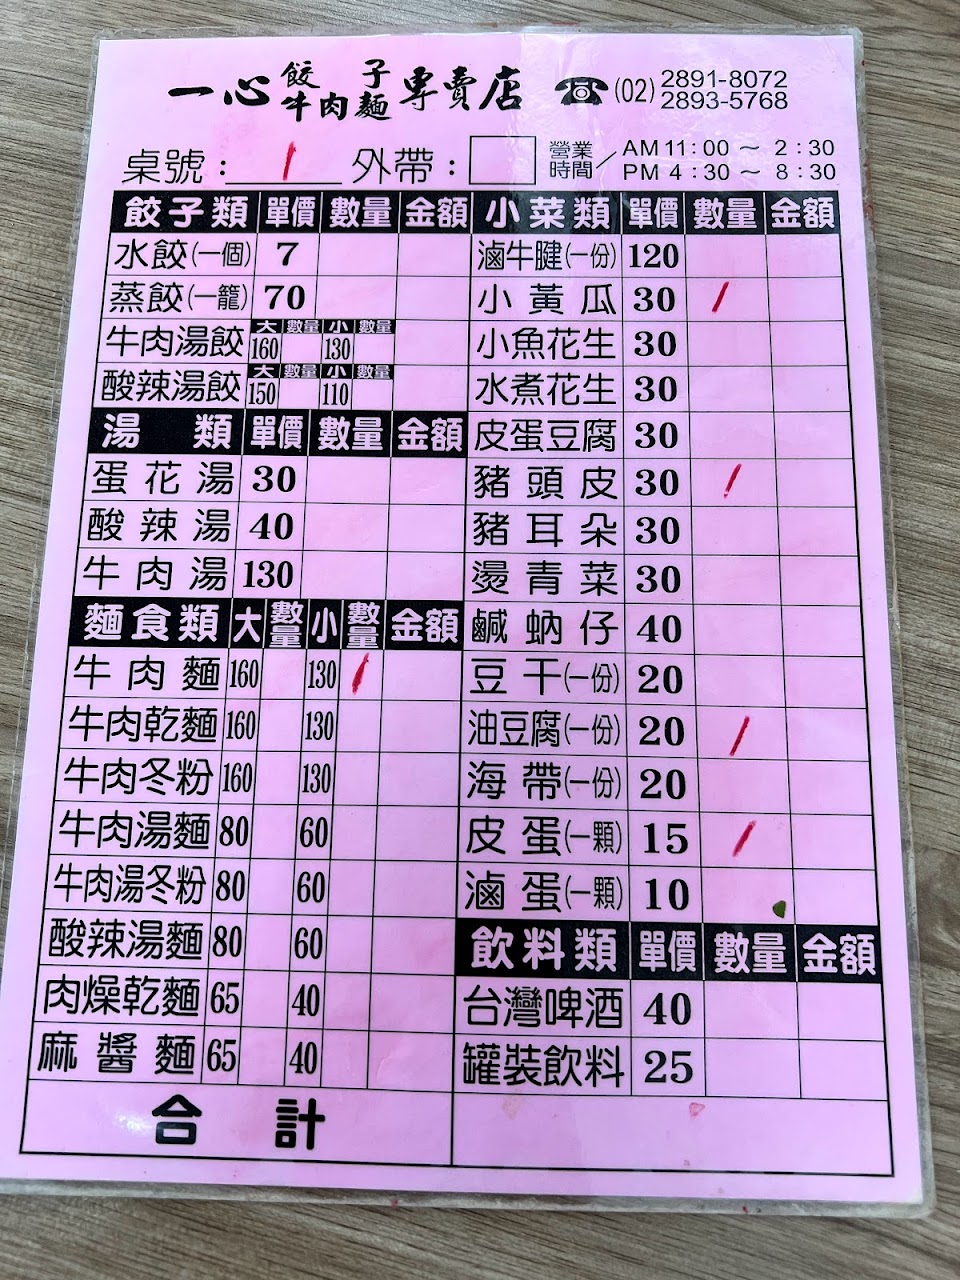 一心餃子牛肉麵專賣店 ☎(02) 2891-8072
2893-5768
桌號：1 外帶： 營業時間／AM 11：00 ～ 2：30
PM 4：30 ～ 8：30
餃子類 單價 數量 金額
水餃(一個) 7
蒸餃(一籠) 70
牛肉湯餃 大 數量 小 數量
160 130
酸辣湯餃 大 數量 小 數量
150 110
湯類 單價 數量 金額
蛋花湯 30
酸辣湯 40
牛肉湯 130
麵食類 大 數量 小 數量 金額
牛肉麵 160 130 /
牛肉乾麵 160 130
牛肉冬粉 160 130
牛肉湯麵 80 60
牛肉湯冬粉 80 60
酸辣湯麵 80 60
肉燥乾麵 65 40
麻醬麵 65 40
小菜類 單價 數量 金額
滷牛腱(一份) 120
小黃瓜 30 /
小魚花生 30
水煮花生 30
皮蛋豆腐 30
豬頭皮 30 /
豬耳朵 30
燙青菜 30
鹹蚋仔 40
豆干(一份) 20
油豆腐(一份) 20 /
海帶(一份) 20
皮蛋(一顆) 15 /
滷蛋(一顆) 10
飲料類 單價 數量 金額
台灣啤酒 40
罐裝飲料 25
合計